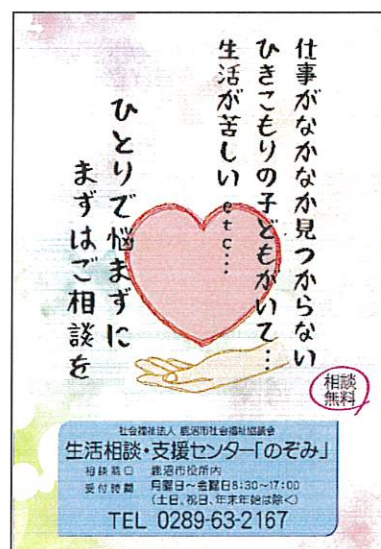 仕事がなかなか見つからない
ひきこもりの子どもがいて…
生活が苦しいetc…
ひとりで悩まずに
まずはご相談を
相談
無料
社会福祉法人 鹿沼市社会福祉協議会
生活相談・支援センター「のぞみ」
相談窓口 鹿沼市役所内
受付時間 月曜日～金曜日8:30～17:00
(土日、祝日、年末年始は除く)
TEL 0289-63-2167